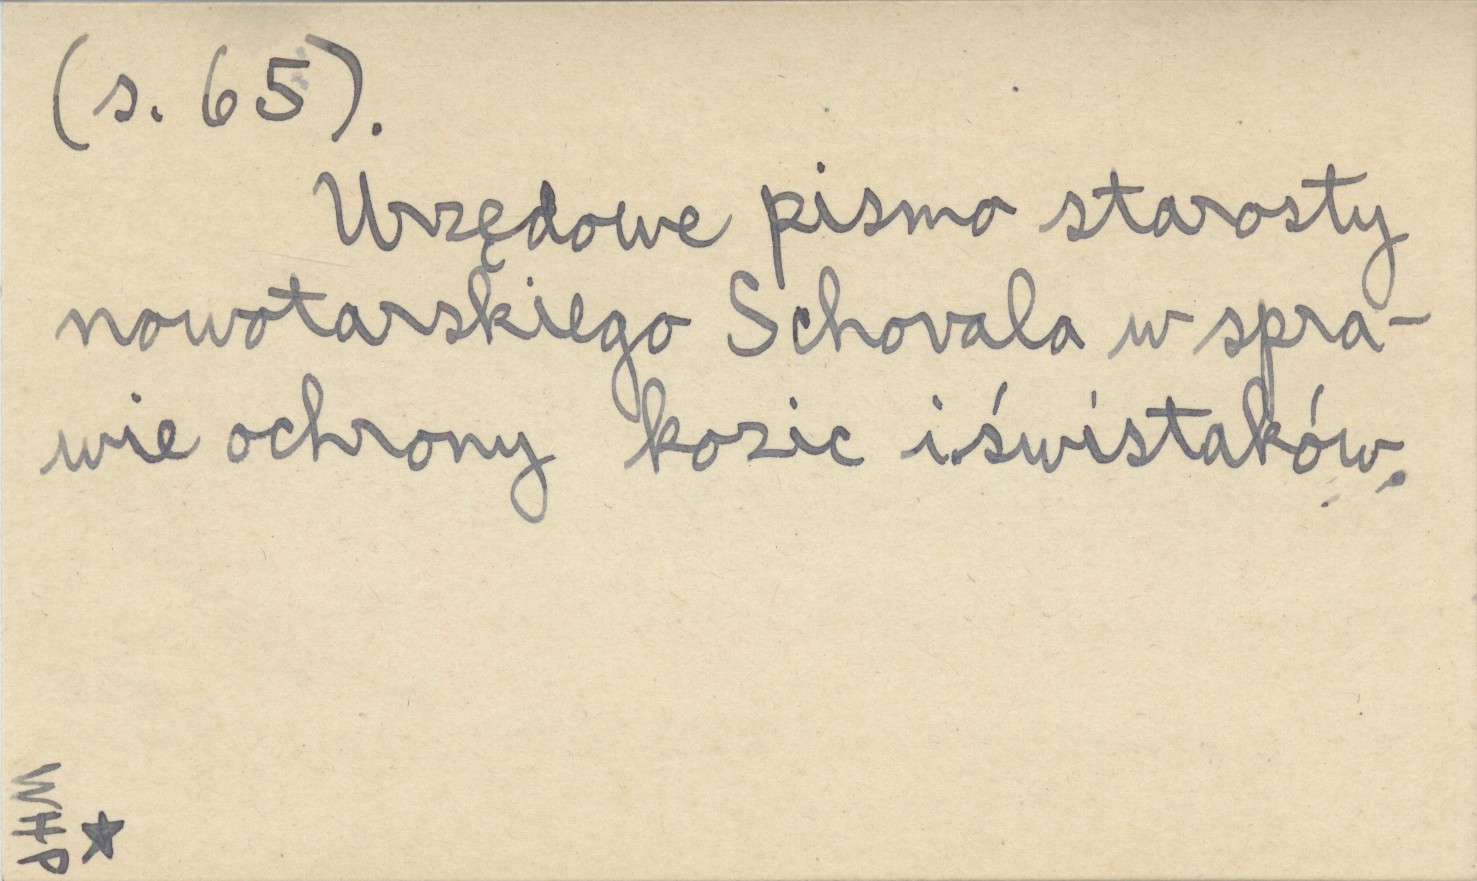 (s. 65).
Urzędowe pismo starosty
nowotarskiego Schovala w spra-
wie ochrony kozic i świstaków.
WHP